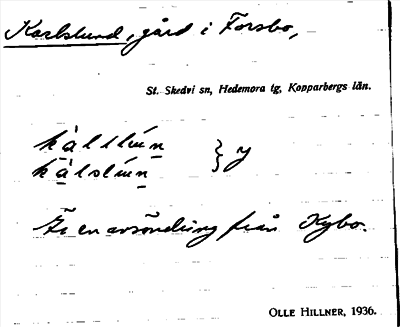 Karlslund, gård i Forsbo,
St. Skedvi sn, Hedemora tg, Kopparbergs län.
kàlslún } y
kàlslún
Är en avsöndring från Kybo.
OLLE HILLNER, 1936.